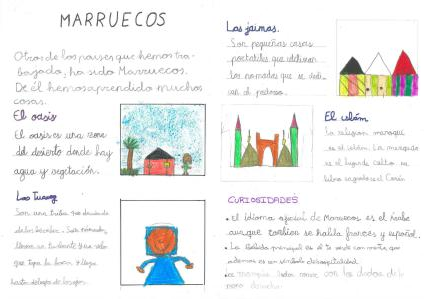 MARRUECOS
Otro de los países que hemos tra-
bajado, ha sido Marruecos.
De él hemos aprendido muchas
cosas.
El oasis
El oasis es una zona
del desierto donde hay
agua y vegetación.
Los Tuareg
Son una tribu que
de los
un turbante y un velo
que tapa la boca y llega
hasta debajo de los ojos.
Las jaimas.
Son pequeñas casas
portátiles que utilizan
los nómadas que se dedi-
can al pastoreo.
El islám
La religión marroquí
es el islám. La mezquita
es el lugar de culto y su
libro sagrado es el Corán
CURIOSIDADES
• El idioma oficial de Marruecos es el árabe
aunque también se habla francés y español.
• La bebida principal es el té verde con menta, que
además es un símbolo de hospitalidad.
• con los dedos del
mano derecha.